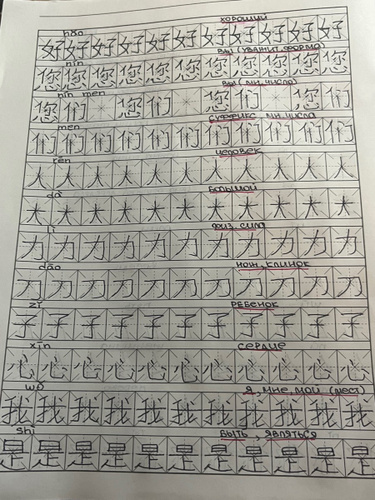 hǎo хороший
好好好好好好好好好好好
nín Вы (уважит. форма)
您您您您您您您您您您您
nín men Вы (мн. число)
您们 您们 您们 您们
men суффикс мн. числа
们们们们们们们们们们们
rén человек
人人人人人人人人人人人
dà большой
大大大大大大大大大大大
lì физ. сила
力力力力力力力力力力力
dāo нож, клинок
刀刀刀刀刀刀刀刀刀刀刀
zǐ ребенок
子子子子子子子子子子子
xīn сердце
心心心心心心心心心心
wǒ я, мне, мой
我我我我我我我我我我
shì быть, являться
是是是是是是是是是是